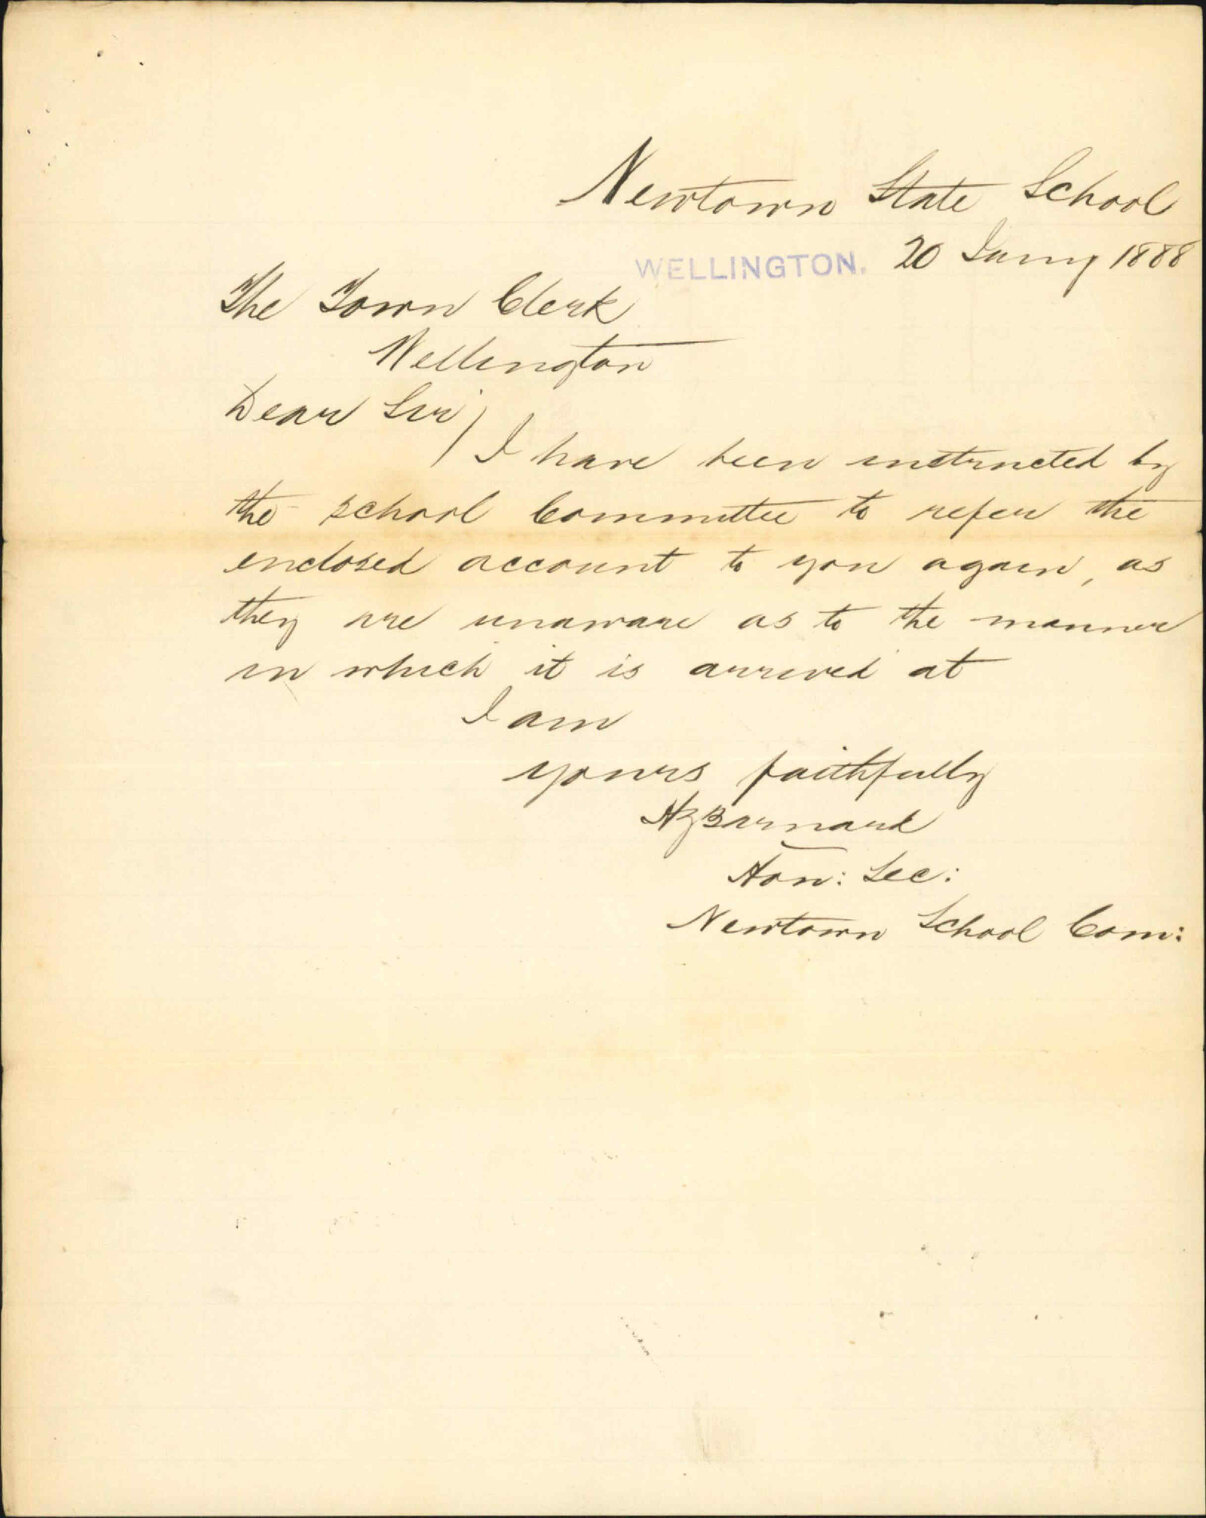 Newtown State School
WELLINGTON. 20 Jany 1888
The Town Clerk
Wellington
Dear Sir/
I have been instructed by
the school Committee to refer the
enclosed account to you again, as
they are unaware as to the manner
in which it is arrived at
I am
yours faithfully
Barnard
Hon: Sec:
Newtown School Com: